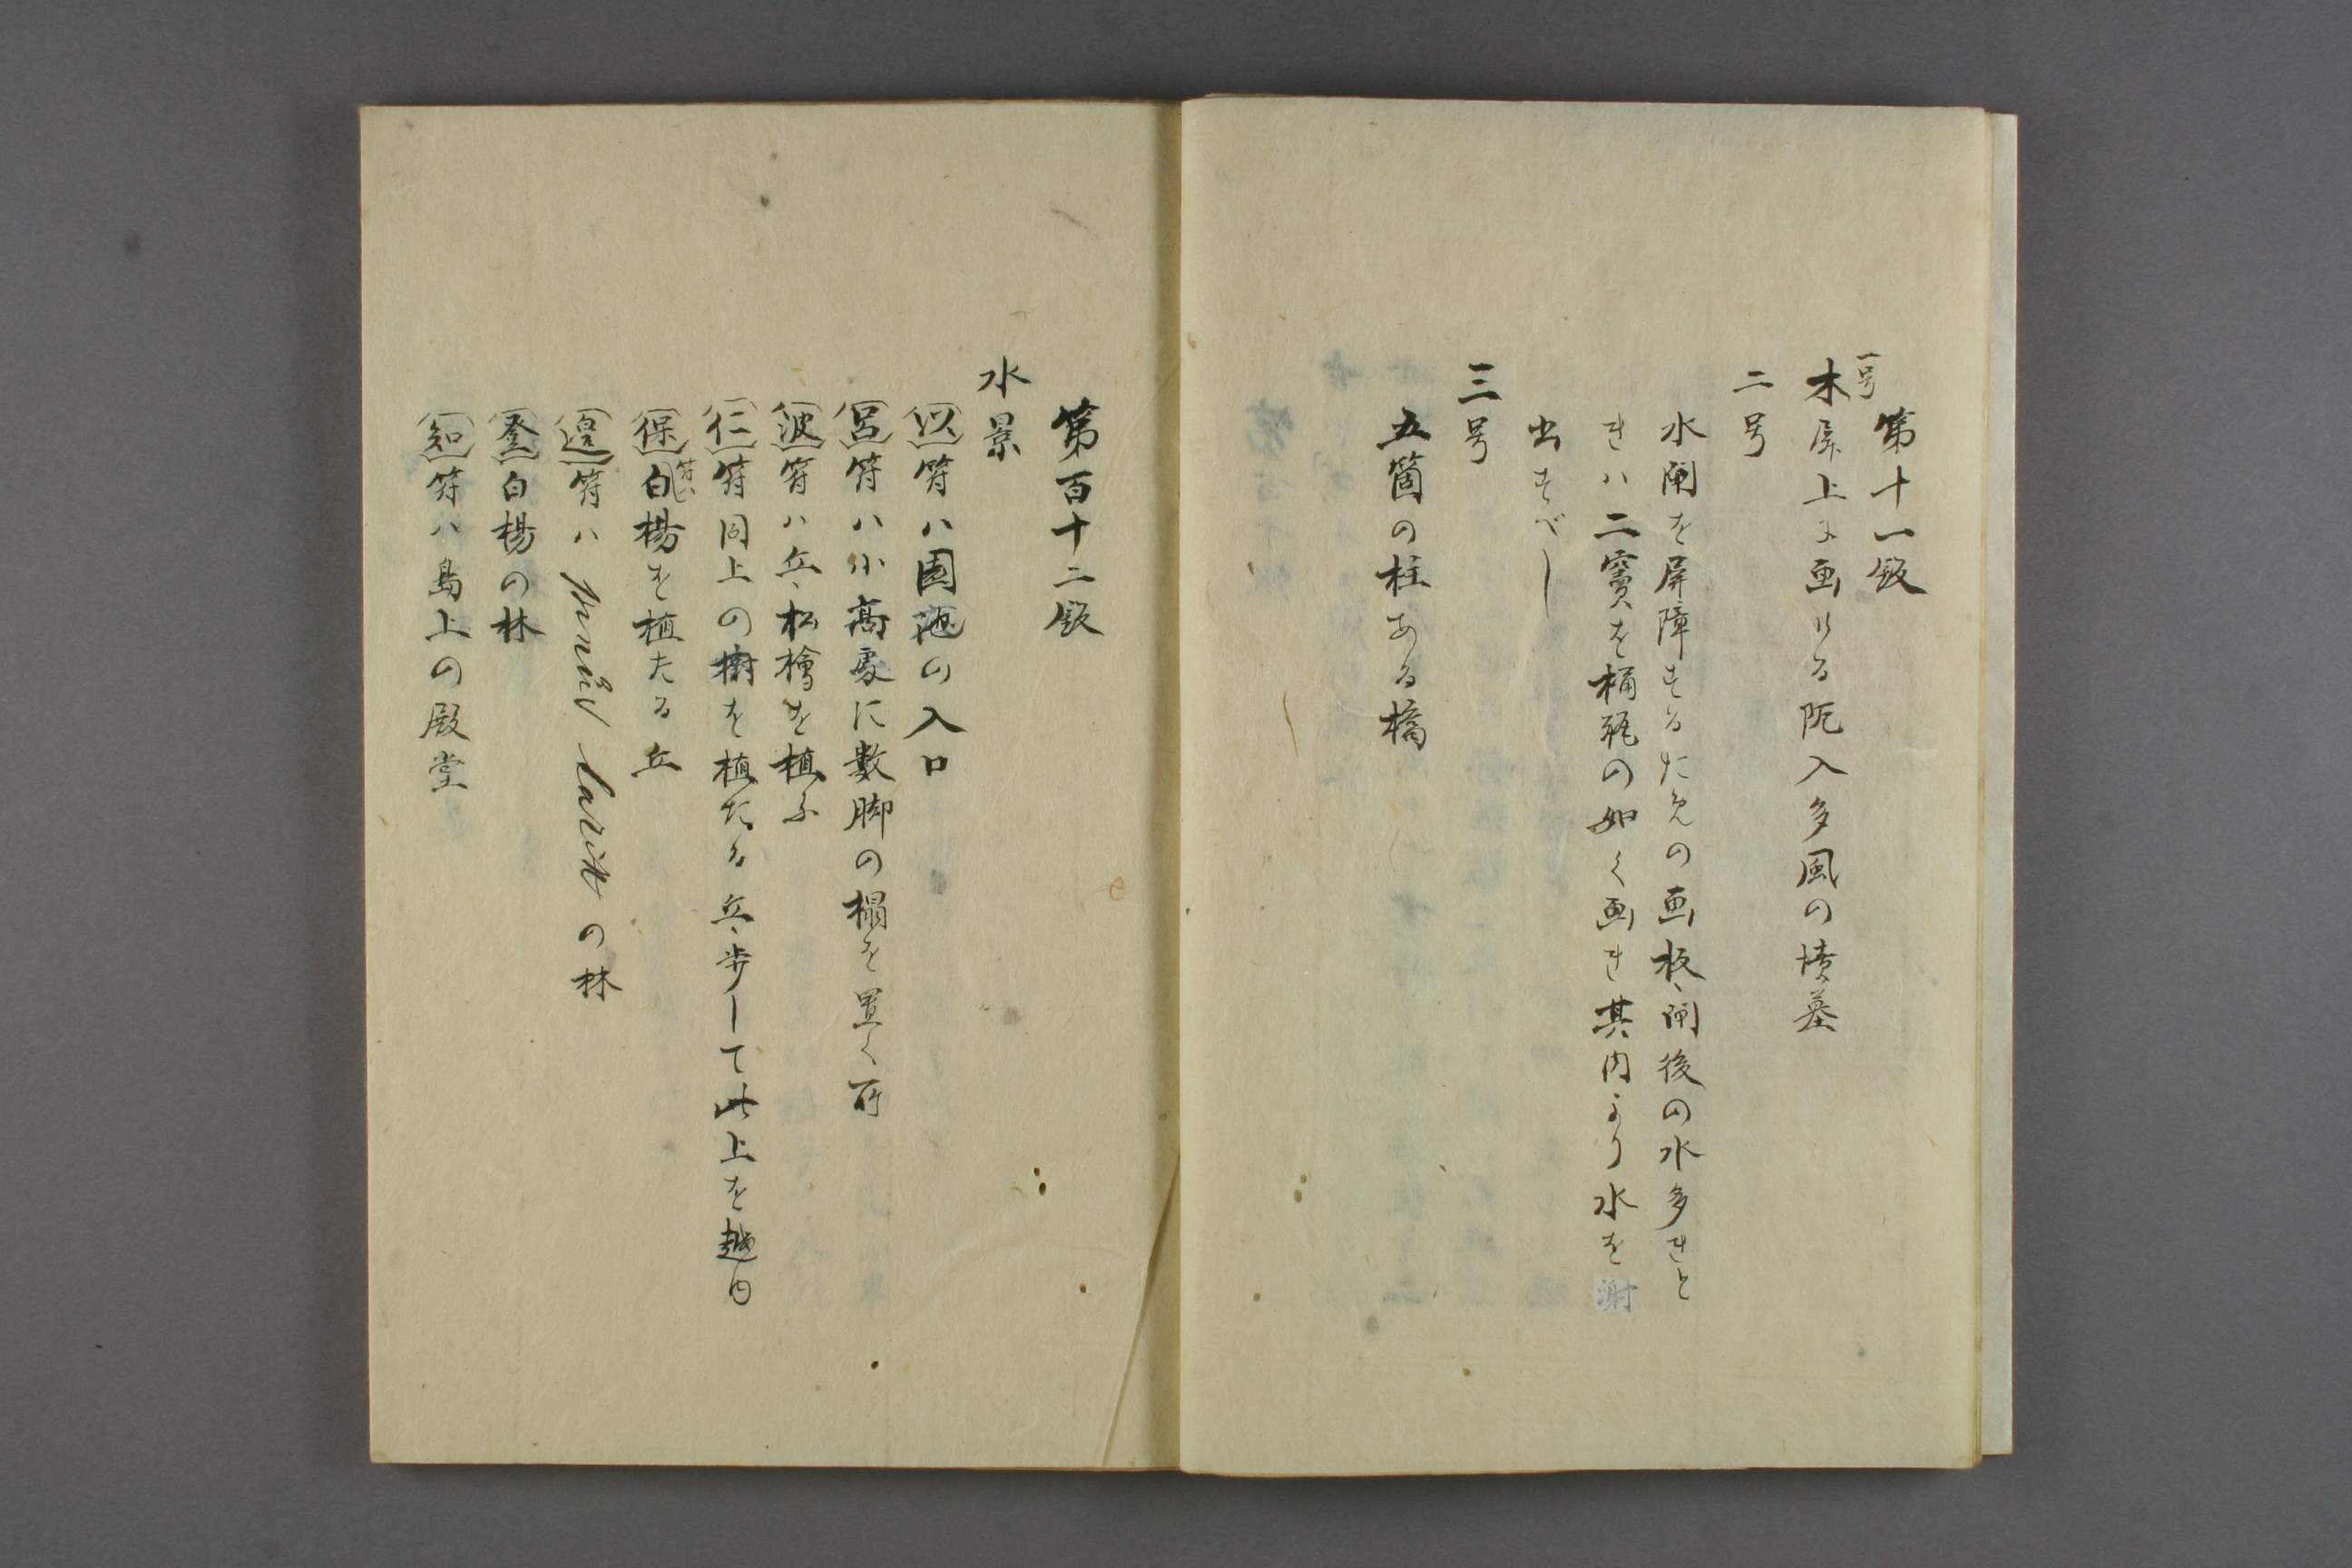 第十一鈑
一号
木屏上に画ける阨入多風の墳墓
二号
水閘を屏障するための画板、閘後の水多きと
きハ二竇を桶瓶の如く画き其内より水を謝
出すべし
三号
五箇の柱ある橋
第百十二鈑
水景
(以)符ハ園池の入口
(呂)符ハ小高處に數脚の榻を置く所
(波)符ハ丘、松檜を植ふ
(仁)符同上の樹を植たる丘、歩して此上を越ゆ
(保)符ハ白楊を植たる丘
(邉)符ハ pinus larix の林
(登)白楊の林
(知)符ハ島上の殿堂